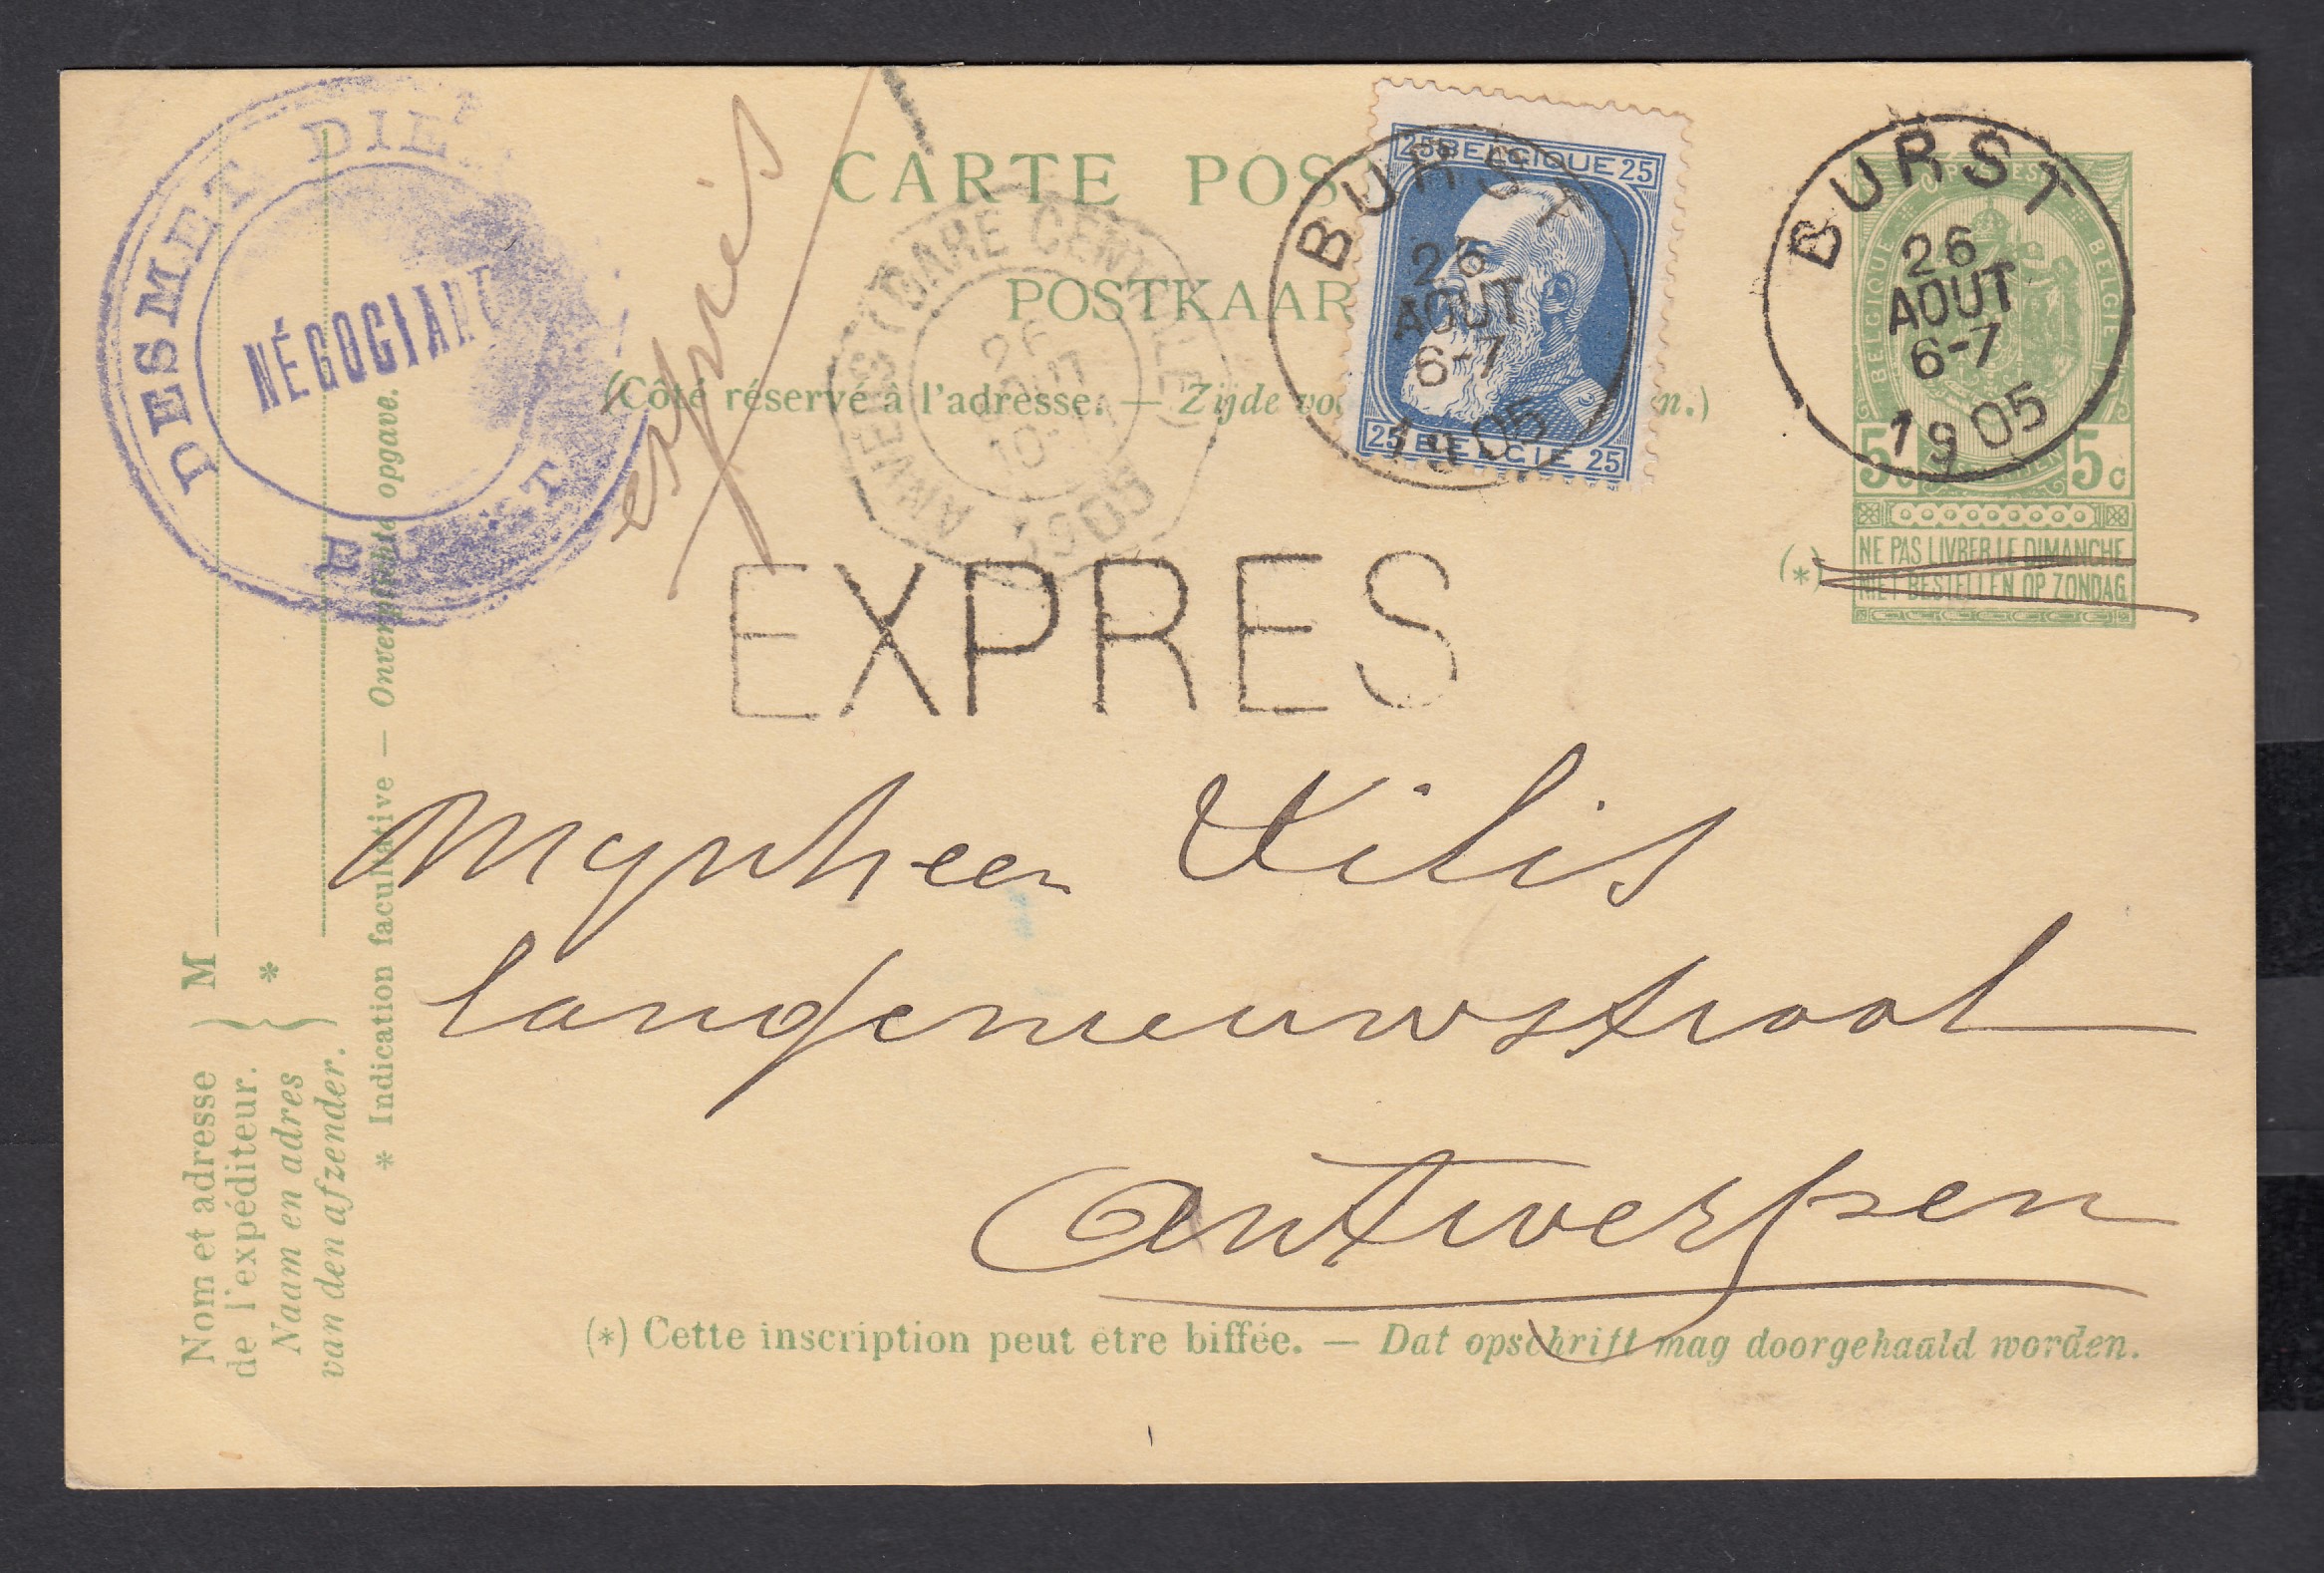 CARTE POS
POSTKAAR
(Côté réservé à l'adresse. — Zijde n.)
DESMET
NÉGOCIANT
exprès
ANVERS (GARE CENTRALE)
26
AOUT
10-11
1905
25 BELGIQUE 25
25 BELGIE 25
BURST
26
AOUT
6-7
1905
BURST
26
AOUT
6-7
1905
BELGIQUE
BELGIE
5c 5c
(*) NE PAS LIVRER LE DIMANCHE
NIET BESTELLEN OP ZONDAG
EXPRES
Mynheer
Langenieuwstraat
Antwerpen
(*) Cette inscription peut être biffée. — Dat opschrift mag doorgehaald worden.
M
Nom et adresse
de l'expéditeur.
Naam en adres
van den afzender.
*
* Indication facultative — Onverplichte opgave.